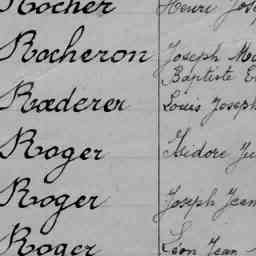 Rocher Henri Jose
Rocheron Joseph Ma
Baptiste
Rœderer Louis Joseph
Roger Isidore Ju
Roger Joseph Jean
Roger Léon Jean